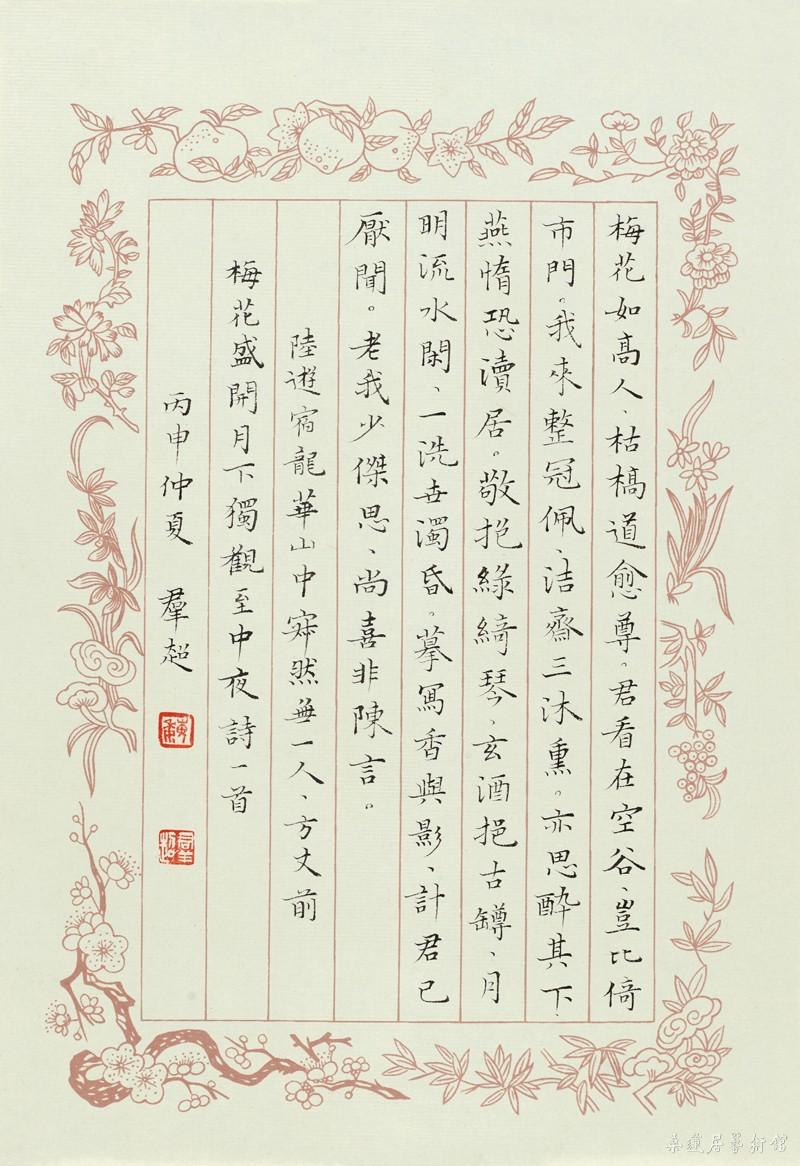 梅花如髙人、枯槁道愈尊。君看在空谷、豈比倚
市門。我來整冠佩、洁齋三沐熏。亦思醉其下、
燕惰恐瀆居。敬抱綠綺琴、玄酒挹古罇、月
明流水閑、一洗世濁昏。摹寫香與影、計君已
厭聞。老我少傑思、尚喜非陳言。
陸遊宿龍華山中寂然無一人、方丈前
梅花盛開月下獨觀至中夜詩一首
丙申仲夏 羣超
桑蓮居藝術館